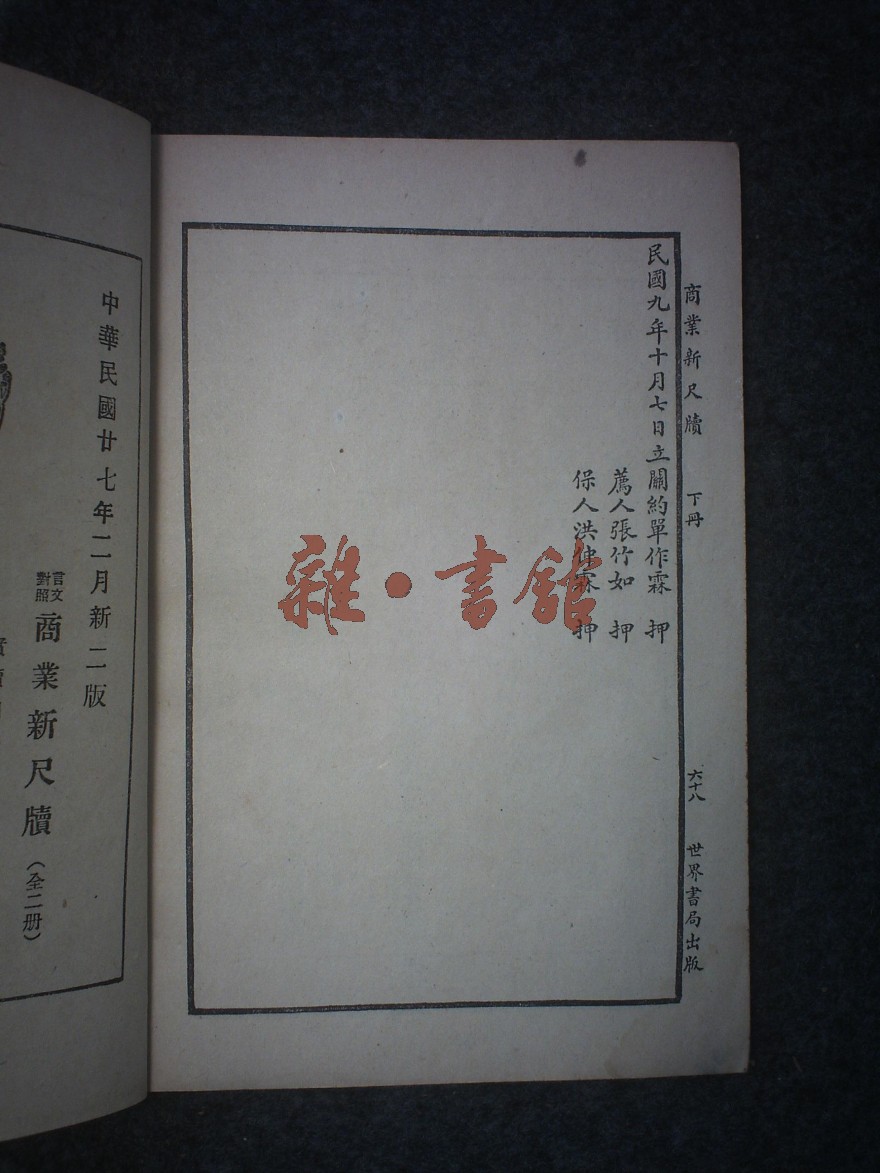 商業新尺牘 下冊 六十八 世界書局出版
民國九年十月七日立關約單作霖 押
薦人張竹如 押
保人洪仲霖 押
雜·書館
中華民國廿七年二月新二版
言文對照 商業新尺牘(全二册)